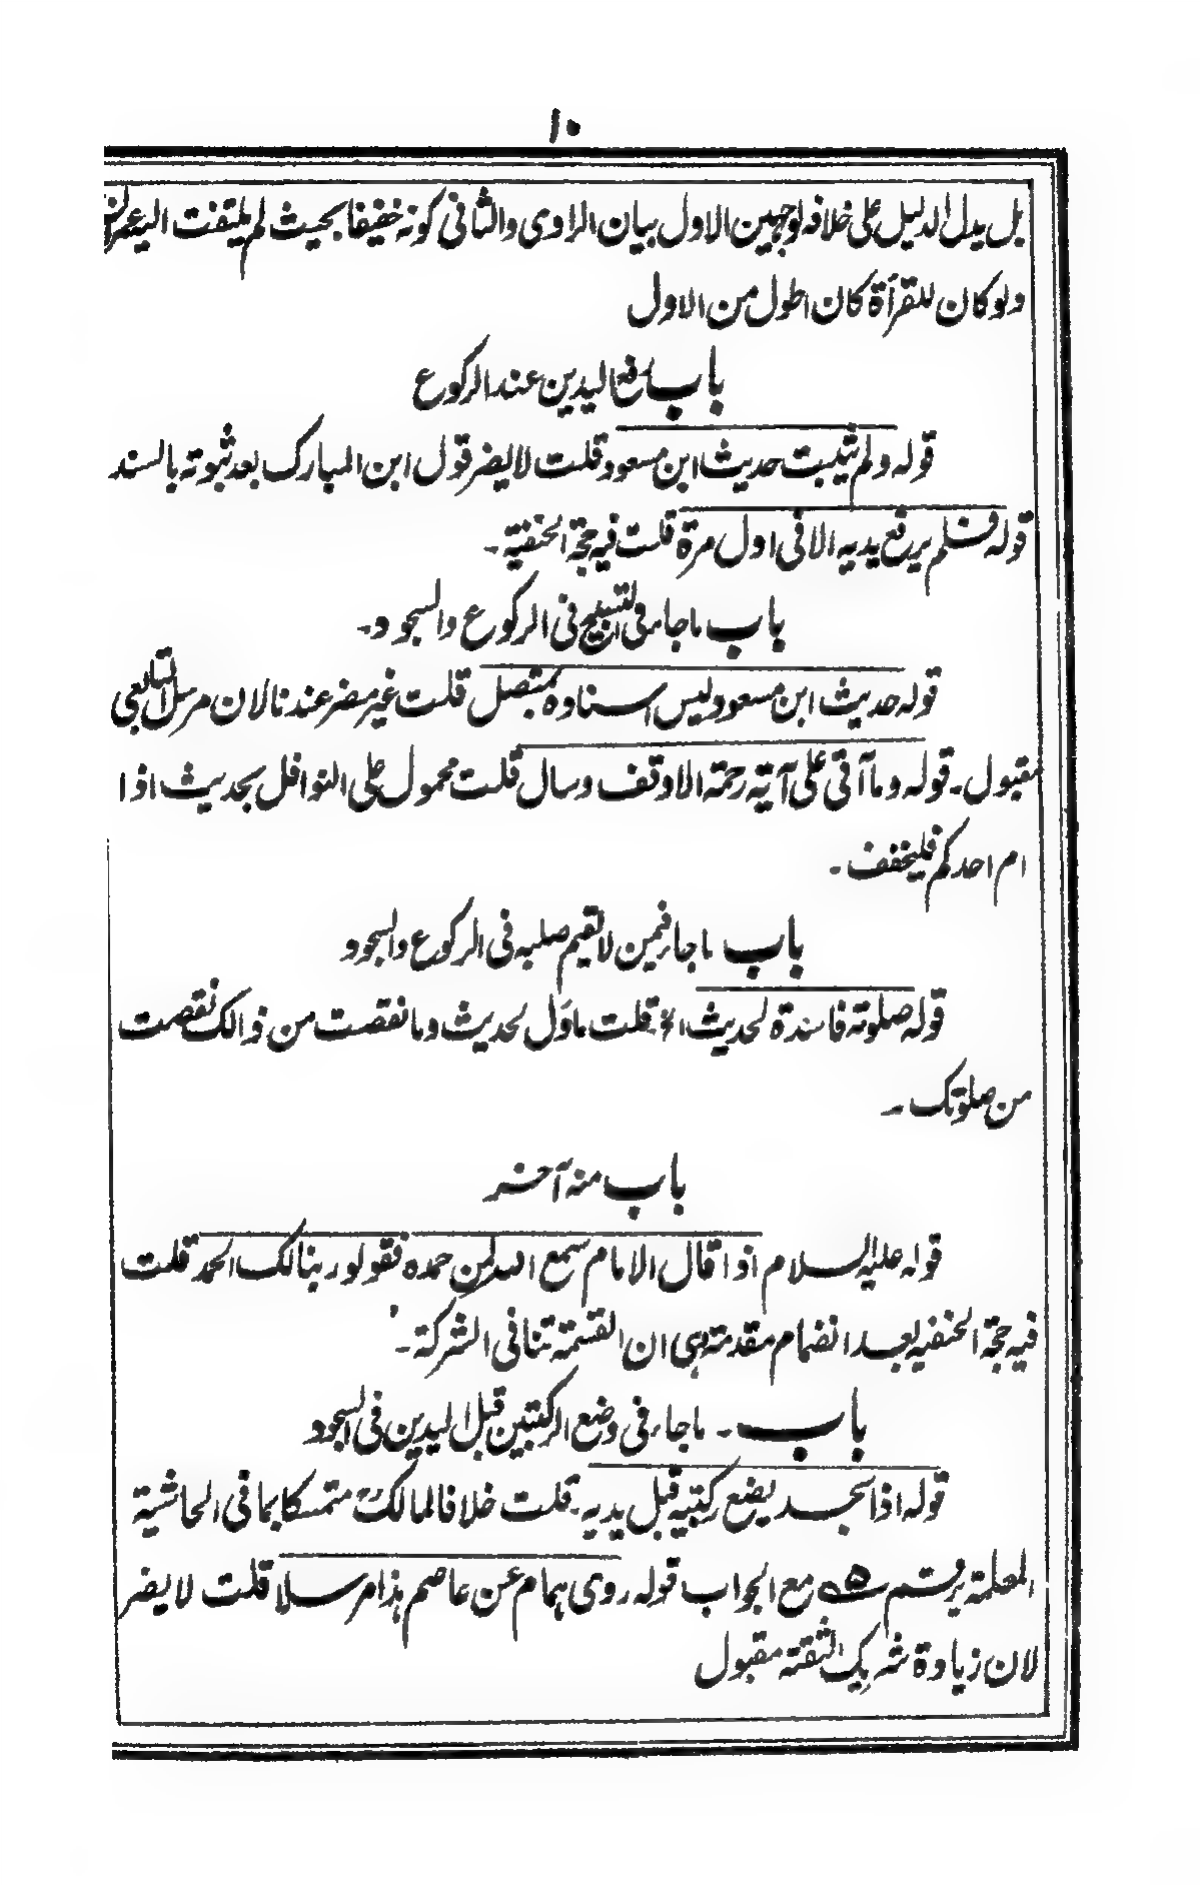 ۱۰
بل يدل الدليل على خلافه لوجهين الاول بيان الراوى والثانى كونه خفيفا بحيث لم يلتفت اليه
ولو كان للقرأة كان اطول من الاول
باب رفع اليدين عند الركوع
قوله ولم يثبت حديث ابن مسعود قلت لا يضر قول ابن المبارك بعد ثبوته بالسند
قوله فلم يرفع يديه الا فى اول مرة قلت فيه حجة الحنفية ۔
باب ما جاء فى التسبيح فى الركوع والسجود ۔
قوله حديث ابن مسعود ليس اسناده بمتصل قلت غير مضر عندنا لان مرسل التابعى
مقبول ۔ قوله وما آتى على آية رحمة الا وقف وسال قلت محمول على النوافل بحديث اذا
ام احدكم فليخفف ۔
باب ما جاء فيمن لا يقيم صلبه فى الركوع والسجود
قوله صلوته فاسدة لحديث الخ قلت ماول لحديث وما نقصت من ذالك نقصت
من صلوتك ۔
باب منه آخر
قوله عليه السلام اذا قال الامام سمع الله لمن حمده فقولو ربنا لك الحمد قلت
فيه حجة الحنفيه بعد انضمام مقدمة هى ان القسمة تنافى الشركة ۔
باب ۔ ما جاء فى وضع الركبتين قبل اليدين فى السجود
قوله اذا سجد يضع ركبتيه قبل يديه ۔ قلت خلافا لمالك متمسكا بما فى الحاشية
المعلمة برقم ۵ مع الجواب قوله روى همام عن عاصم هذا مرسلا قلت لا يضر
لان زيادة شريك الثقة مقبول